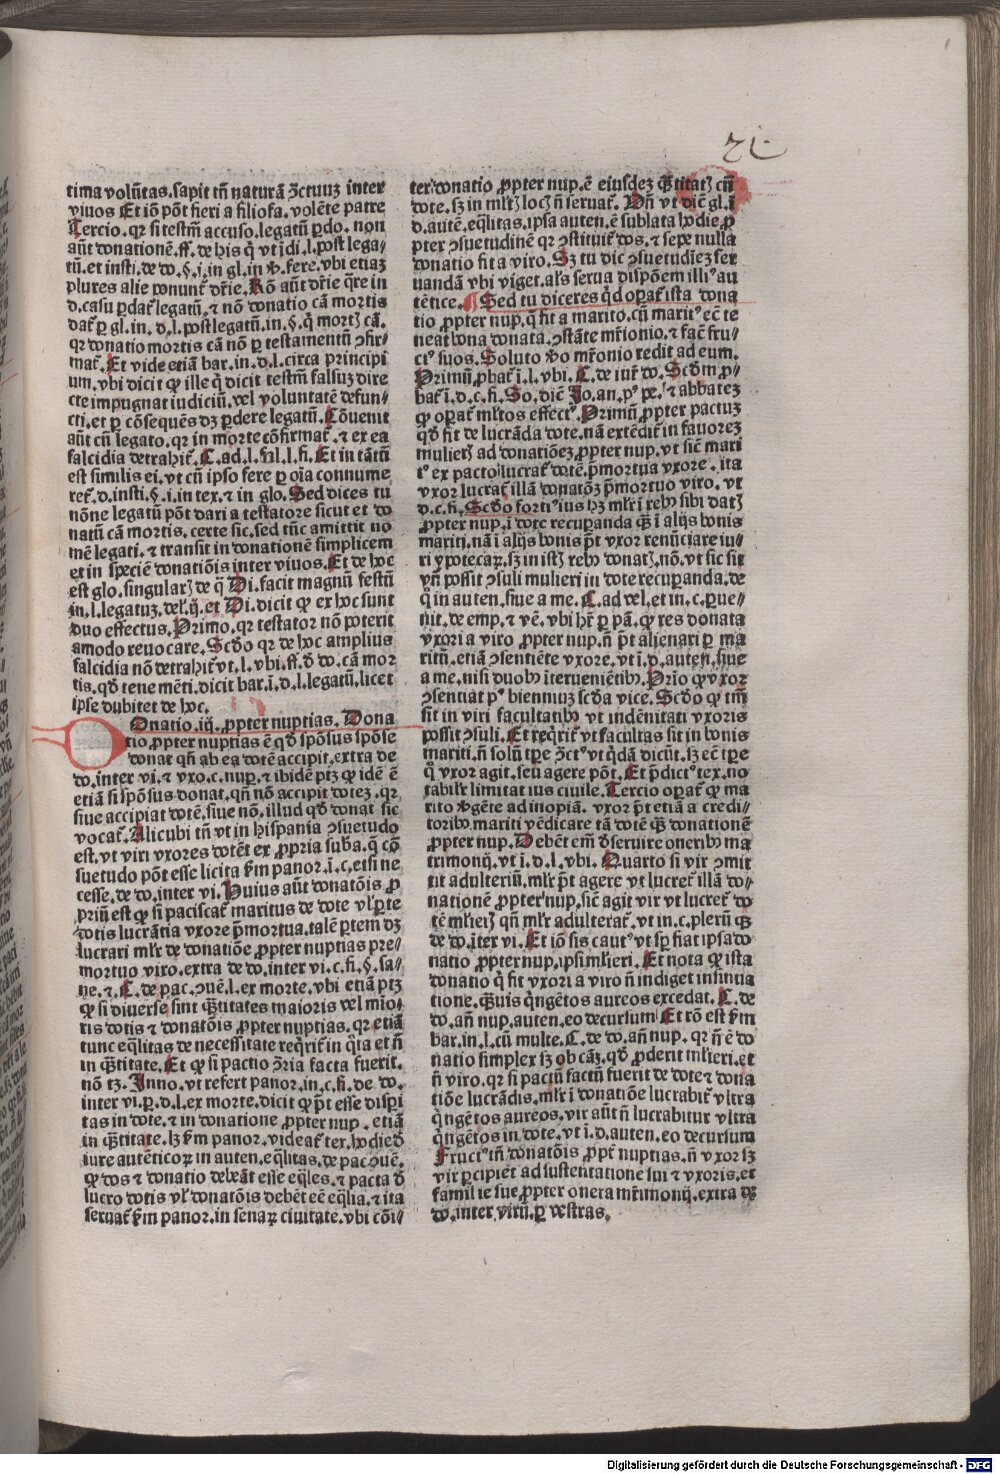 tima volūtas. sapit tn̄ naturā ꝯctuuȝ inter
viuos Et iō pōt fieri a filiofa. volēte patre
Tercio. qr si testm̄ accuso. legatū ꝑdo. non
aūt donationē. ff. de his q̄ vt īdi. l. post lega-
tū. et insti. de do. §. i. in gl. in ꝟ. fere. vbi etiaȝ
plures alie ponunt̄ dr̄ie. Rō aūt dr̄ie q̄re in
d. casu ꝑdat̄ legatū. ⁊ nō donatio cā mortis
dat̄ ꝑ gl. in. d. l. post legatū. in. §. q̄ mortꝭ cā.
qr donatio mortis cā nō ꝑ testamentū ꝯfir-
mat̄. Et vide etiā bar. in. d. l. circa principi
um. vbi dicit ꝙ ille q̄ dicit testm̄ falsuȝ dire
cte impugnat iudiciū. vel voluntatē defun-
cti. et ꝑ cōsequēs dȝ ꝑdere legatū. Cōuenit
aūt cū legato. qr in morte cōfirmat̄. ⁊ ex ea
falcidia detrahit̄. C. ad. l. fal. l. fi. Et in tātū
est similis ei. vt cū ipso fere ꝑ oīa connume
ret̄. d. insti. §. i. in tex. ⁊ in glo. Sed dices tu
nōne legatū pōt dari a testatore sicut et do
natū cā mortis. certe sic. sed tūc amittit no
mē legati. ⁊ transit in donationē simplicem
et in speciē donatiōis inter viuos. Et de hoc
est glo. singularꝭ de q̄ Di. facit magnū festū
in. l. legatuȝ. del. ij. et Di. dicit ꝙ ex hoc sunt
duo effectus. Primo. qr testator nō poterit
amodo reuocare. Scd̄o qr de hoc amplius
falcidia nō detrahit̄ vt. l. vbi. ff. ð do. cā mor
tis. qd̄ tene mēti. dicit bar. ī. d. l. legatū. licet
ipse dubitet de hoc.
Onatio. iij. ꝓpter nuptias. Dona
tio ꝓpter nuptias ē qd̄ spōsus spōse
donat qn̄ ab ea dotē accipit. extra de
do. inter vi. ⁊ vxo. c. nuꝑ. ⁊ ibidē ptȝ ꝙ idē ē
etiā si spōsus donat. qn̄ nō accipit doteȝ. qr
siue accipiat dotē. siue nō. illud qd̄ donat sic
vocat̄. Alicubi tn̄ vt in hispania ꝯsuetudo
est. vt viri vxores dotēt ex ꝓpria suba. q̄ cō
suetudo pōt esse licita ẜm panor. ī. c. etsi ne
cesse. de do. inter vi. Huius aūt donatōis ꝓ
priū est ꝙ si paciscat̄ maritus de dote vl̄ ꝑte
dotis lucrātia vxore p̄mortua. talē ꝑtem dȝ
lucrari mlr̄ de donatiōe ꝓpter nuptias pre-
mortuo viro. extra de do. inter vi. c. fi. §. sa-
ne. ⁊. C. de pac. ꝯuē. l. ex morte. vbi etiā ptȝ
ꝙ si diuerse sint q̄ntitates maioris vel mīo-
ris dotis ⁊ donatōis ꝓpter nuptias. qr etiā
tunc eq̄litas de necessitate reqrit̄ in q̄ta et n̄
in q̄ntitate. Et ꝙ si pactio ꝯria facta fuerit.
nō tȝ. Inno. vt refert panor. in. c. fi. de do.
inter vi. ꝑ. d. l. ex morte. dicit ꝙ p̄t esse dispi
tas in dote. ⁊ in donatione ꝓpter nup. etiā
in q̄ntitate. lȝ ẜm panor. videat̄ ter. hodie ð
iure autēticoꝝ in auten. eq̄litas. de pac ꝯuē.
ꝙ dos ⁊ donatio debeāt esse eq̄les. ⁊ pacta ð
lucro dotis vl̄ donatōis debēt eē eq̄lia. ⁊ ita
seruat̄ ẜm panor. in senaꝝ ciuitate. vbi cōi-
ter donatio ꝓpter nup. ē eiusdeȝ q̄ntitatꝭ cū
dote. sȝ in ml̄tꝭ locꝭ n̄ seruat̄. Vn̄ vt dicē gl. ī
d. autē. eq̄litas. ipsa auten. ē sublata hodie ꝓ
pter ꝯsuetudinē qr ꝯstituit̄ dos. ⁊ sepe nulla
donatio fit a viro. Sȝ tu dic ꝯsuetudīeȝ ser
uandā vbi viget. al̄s serua dispōem illiꝰ au
tētice. Sed tu diceres qd̄ oꝑat̄ ista dona
tio ꝓpter nup. q̄ fit a marito. cū maritꝰ eē te
neat̄ bona donata. ꝯstāte mr̄ionio. ⁊ fac̄ fru-
ctꝰ suos. Soluto ꝟo mr̄onio redit ad eum.
Primū ꝓbat̄ ī. l. vbi. C. de iur̄ do. Scd̄m ꝓ-
bat̄ ī. d. c. fi. So. dic̄ Jo. an. pꝰ pe. ⁊ abbateȝ
ꝙ oꝑat̄ ml̄tos effectꝰ. Primū ꝓpter pactuȝ
qd̄ fit de lucrāda dote. nā extēdit̄ in fauoreȝ
mulierꝭ ad donatiōeȝ ꝓpter nup. vt sic̄ mari
tꝰ ex pacto lucrat̄ dotē p̄mortua vxore. ita
vxor lucrat̄ illā donatōȝ p̄mortuo viro. vt
d. c. fi. Scd̄o fortiꝰ ius hȝ ml̄r ī rebꝰ sibi datꝭ
ꝓpter nup. ī dote recuꝑanda q̄ȝ ī alijs bonis
mariti. nā ī alijs bonis p̄t vxor renūciare iu-
ri ypotecaꝝ. sȝ in istꝭ rebꝰ donatꝭ. nō. vt sic sit
vn̄ possit ꝯsuli mulieri in dote recuꝑanda. de
q̄ in auten. siue a me. C. ad vel. et in. c. ꝑue-
nit. de emp. ⁊ vē. vbi hr̄ ꝑ pā. ꝙ res donata
vxori a viro ꝓpter nup. n̄ p̄t alienari ꝑ ma
ritū. etiā ꝯsentiēte vxore. vt ī. d. auten. siue
a me. nisi duobꝰ ītervenīētibꝰ. Prīo ꝙ vxor
ꝯsentiat pꝰ bienniuȝ scd̄a vice. Scd̄o ꝙ tm̄
sit in viri facultatibꝰ vt indēnitati vxoris
possit ꝯsuli. Et reqrit̄ vt facultas sit in bonis
mariti. n̄ solū tꝑe ꝯctꝰ vt q̄dā dicūt. sȝ eē tꝑe
q̄ vxor agit. seu agere pōt. Et p̄dictꝰ tex. no
tabilr̄ limitat ius ciuile. Tercio oꝑat̄ ꝙ ma
rito ꝟgēte ad inopiā. vxor p̄t etiā a credi-
toribꝰ mariti vēdicare tā dotē q̄ȝ donationē
ꝓpter nup. Debēt em̄ ðseruire oneribꝰ ma
trimonij. vt ī. d. l. vbi. Quarto si vir ꝯmit
tit adulteriū. ml̄r p̄t agere vt lucret̄ illā do-
nationē ꝓpter nup. sic̄ agit vir vt lucret̄ do
tē ml̄ierꝭ qn̄ ml̄r adulterat̄. vt in. c. plerūqȝ
de do. īter vi. Et iō sis cautꝰ vt sꝑ fiat ipsa do
natio ꝓpter nup. ipsi ml̄ieri. Et nota ꝙ ista
donatio q̄ fit vxori a viro n̄ indiget insinua
tione. q̄uis qngētos aureos excedat. C. de
do. an̄ nup. auten. eo decursum Et rō est ẜm
bar. in. l. cū multe. C. de do. an̄ nup. qr n̄ ē do
natio simplex sȝ ob cāȝ. qd̄ ꝓderit ml̄ieri. et
n̄ viro. qr si pactū factū fuerit de dote ⁊ dona
tiōe lucrādis. ml̄r ī donatiōe lucrabit̄ vltra
qngētos aureos. vir aūt n̄ lucrabitur vltra
qngētos in dote. vt ī. d. auten. eo decursum
Fructꝰ tn̄ donatōis ꝓpt̄ nuptias. n̄ vxor sȝ
vir ꝑcipiet ad sustentatione sui ⁊ vxoris. et
familie sue ꝓpter onera mr̄imonij. extra de
do. inter virū. ꝑ vestras.
Digitalisierung gefördert durch die Deutsche Forschungsgemeinschaft - DFG